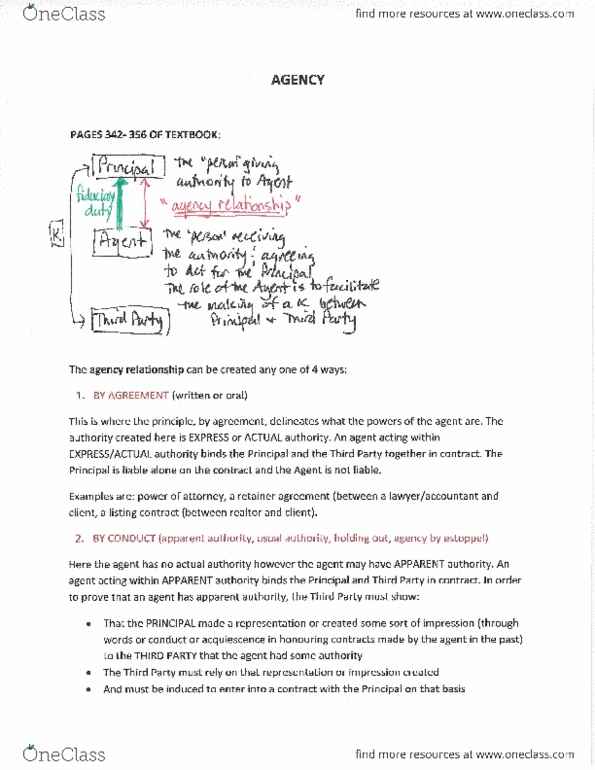 OneClass
find more resources at www.oneclass.com
AGENCY
PAGES 342- 356 OF TEXTBOOK:
Principal
the "person" giving
authority to Agent
fiduciary
duty
"agency relationship"
K
Agent
the "person" receiving
the authority; agreeing
to act for the Principal
The role of the Agent is to facilitate
the making of a K between
Principal + Third Party
Third Party
The agency relationship can be created any one of 4 ways:
1. BY AGREEMENT (written or oral)
This is where the principle, by agreement, delineates what the powers of the agent are. The
authority created here is EXPRESS or ACTUAL authority. An agent acting within
EXPRESS/ACTUAL authority binds the Principal and the Third Party together in contract. The
Principal is liable alone on the contract and the Agent is not liable.
Examples are: power of attorney, a retainer agreement (between a lawyer/accountant and
client, a listing contract (between realtor and client).
2. BY CONDUCT (apparent authority, usual authority, holding out, agency by estoppel)
Here the agent has no actual authority however the agent may have APPARENT authority. An
agent acting within APPARENT authority binds the Principal and Third Party in contract. In order
to prove that an agent has apparent authority, the Third Party must show:
• That the PRINCIPAL made a representation or created some sort of impression (through
words or conduct or acquiescence in honouring contracts made by the agent in the past)
to the THIRD PARTY that the agent had some authority
• The Third Party must rely on that representation or impression created
• And must be induced to enter into a contract with the Principal on that basis
OneClass
find more resources at www.oneclass.com